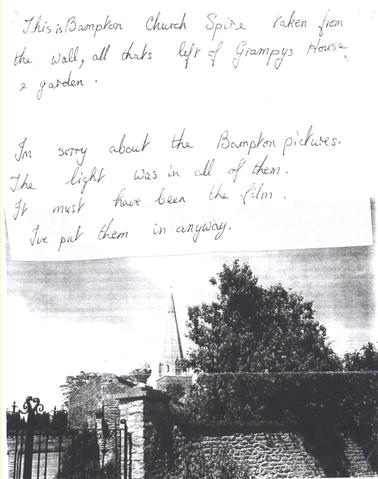 This is Bampton Church Spire taken from
the wall, all thats left of Grampys House
& garden.
Im sorry about the Bampton pictures.
The light was in all of them.
It must have been the film.
Ive put them in anyway.